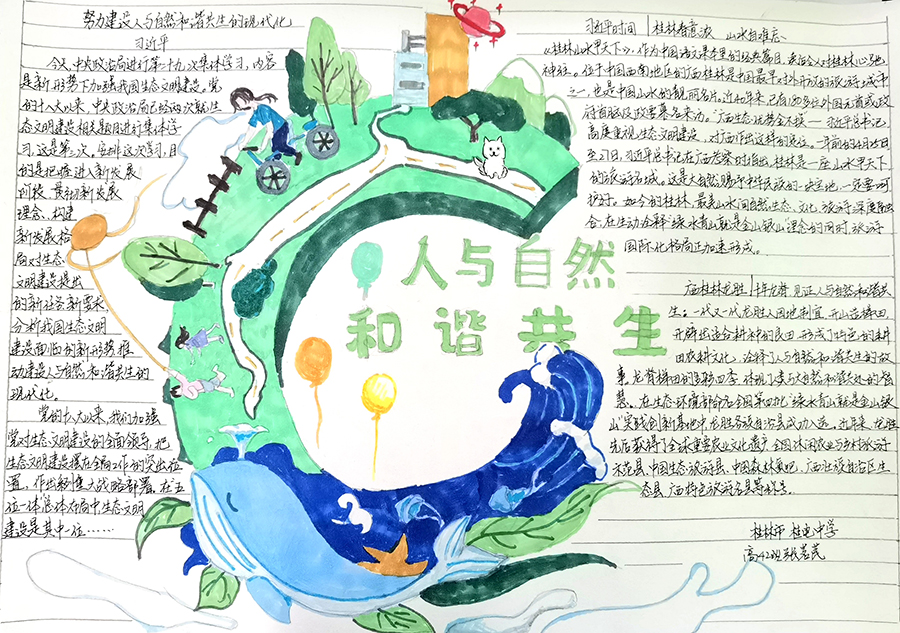 努力建设人与自然和谐共生的现代化
习近平
今天,中央政治局进行第二十九次集体学习,内容
是新形势下加强我国生态文明建设。党
的十八大以来,中央政治局已经两次就生
态文明建设相关题目进行集体学
习,这是第三次。安排这次学习,目
的是把握进入新发展
阶段、贯彻新发展
理念、构建
新发展格
局对生态
文明建设提出
的新任务新要求,
分析我国生态文明
建设面临的新形势,推
动建设人与自然和谐共生的
现代化。
党的十八大以来,我们加强
党对生态文明建设的全面领导,把
生态文明建设摆在全局工作的突出位
置,作出一系列重大战略部署。在五
位一体总体布局中,生态文明
建设是其中一位……
人与自然
和谐共生
习近平时间|桂林春意浓 山水自难忘
《桂林山水甲天下》,作为中国语文课本里的经典篇目,
神往。位于中国西南地区的广西桂林是中国最早对外开放的旅游城市
之一,也是中国山水的靓丽名片。近40年来,已有150多位外国元首或政
府首脑及政要慕名来访。“广西生态优势金不换”——习近平总书记
高度重视生态文明建设,对广西作出这样的定位。一年前的4月25日
至27日,习近平总书记在广西考察时指出,桂林是一座山水甲天下
的旅游名城。这是大自然赐予中华民族的一块宝地,一定要呵
护好。如今的桂林,最美山水间自然生态、文化、旅游深度融
合,在生动诠释“绿水青山就是金山银山”理念的同时,旅游
国际化格局正加速形成。
广西桂林龙胜|千年龙脊 见证人与自然和谐共
生。一代又一代龙胜人因地制宜,开山造梯田,
开辟出适合耕种的良田,形成了特色的农耕
田农耕文化,诠释了人与自然和谐共生的故
事,龙脊梯田的多彩四季,体现了人类与大自然和谐共处的智
慧。在生态环境部命名全国第四批“绿水青山就是金山银
山”实践创新基地中,龙胜各族自治县成功入选。近年来,龙胜
先后获得了全球重要农业文化遗产、全国休闲农业与乡村旅游
示范县、中国生态旅游县、中国森林氧吧、广西壮族自治区生
态县、广西特色旅游名县等称号。
桂林市 桂电中学
高42班 张茗芪